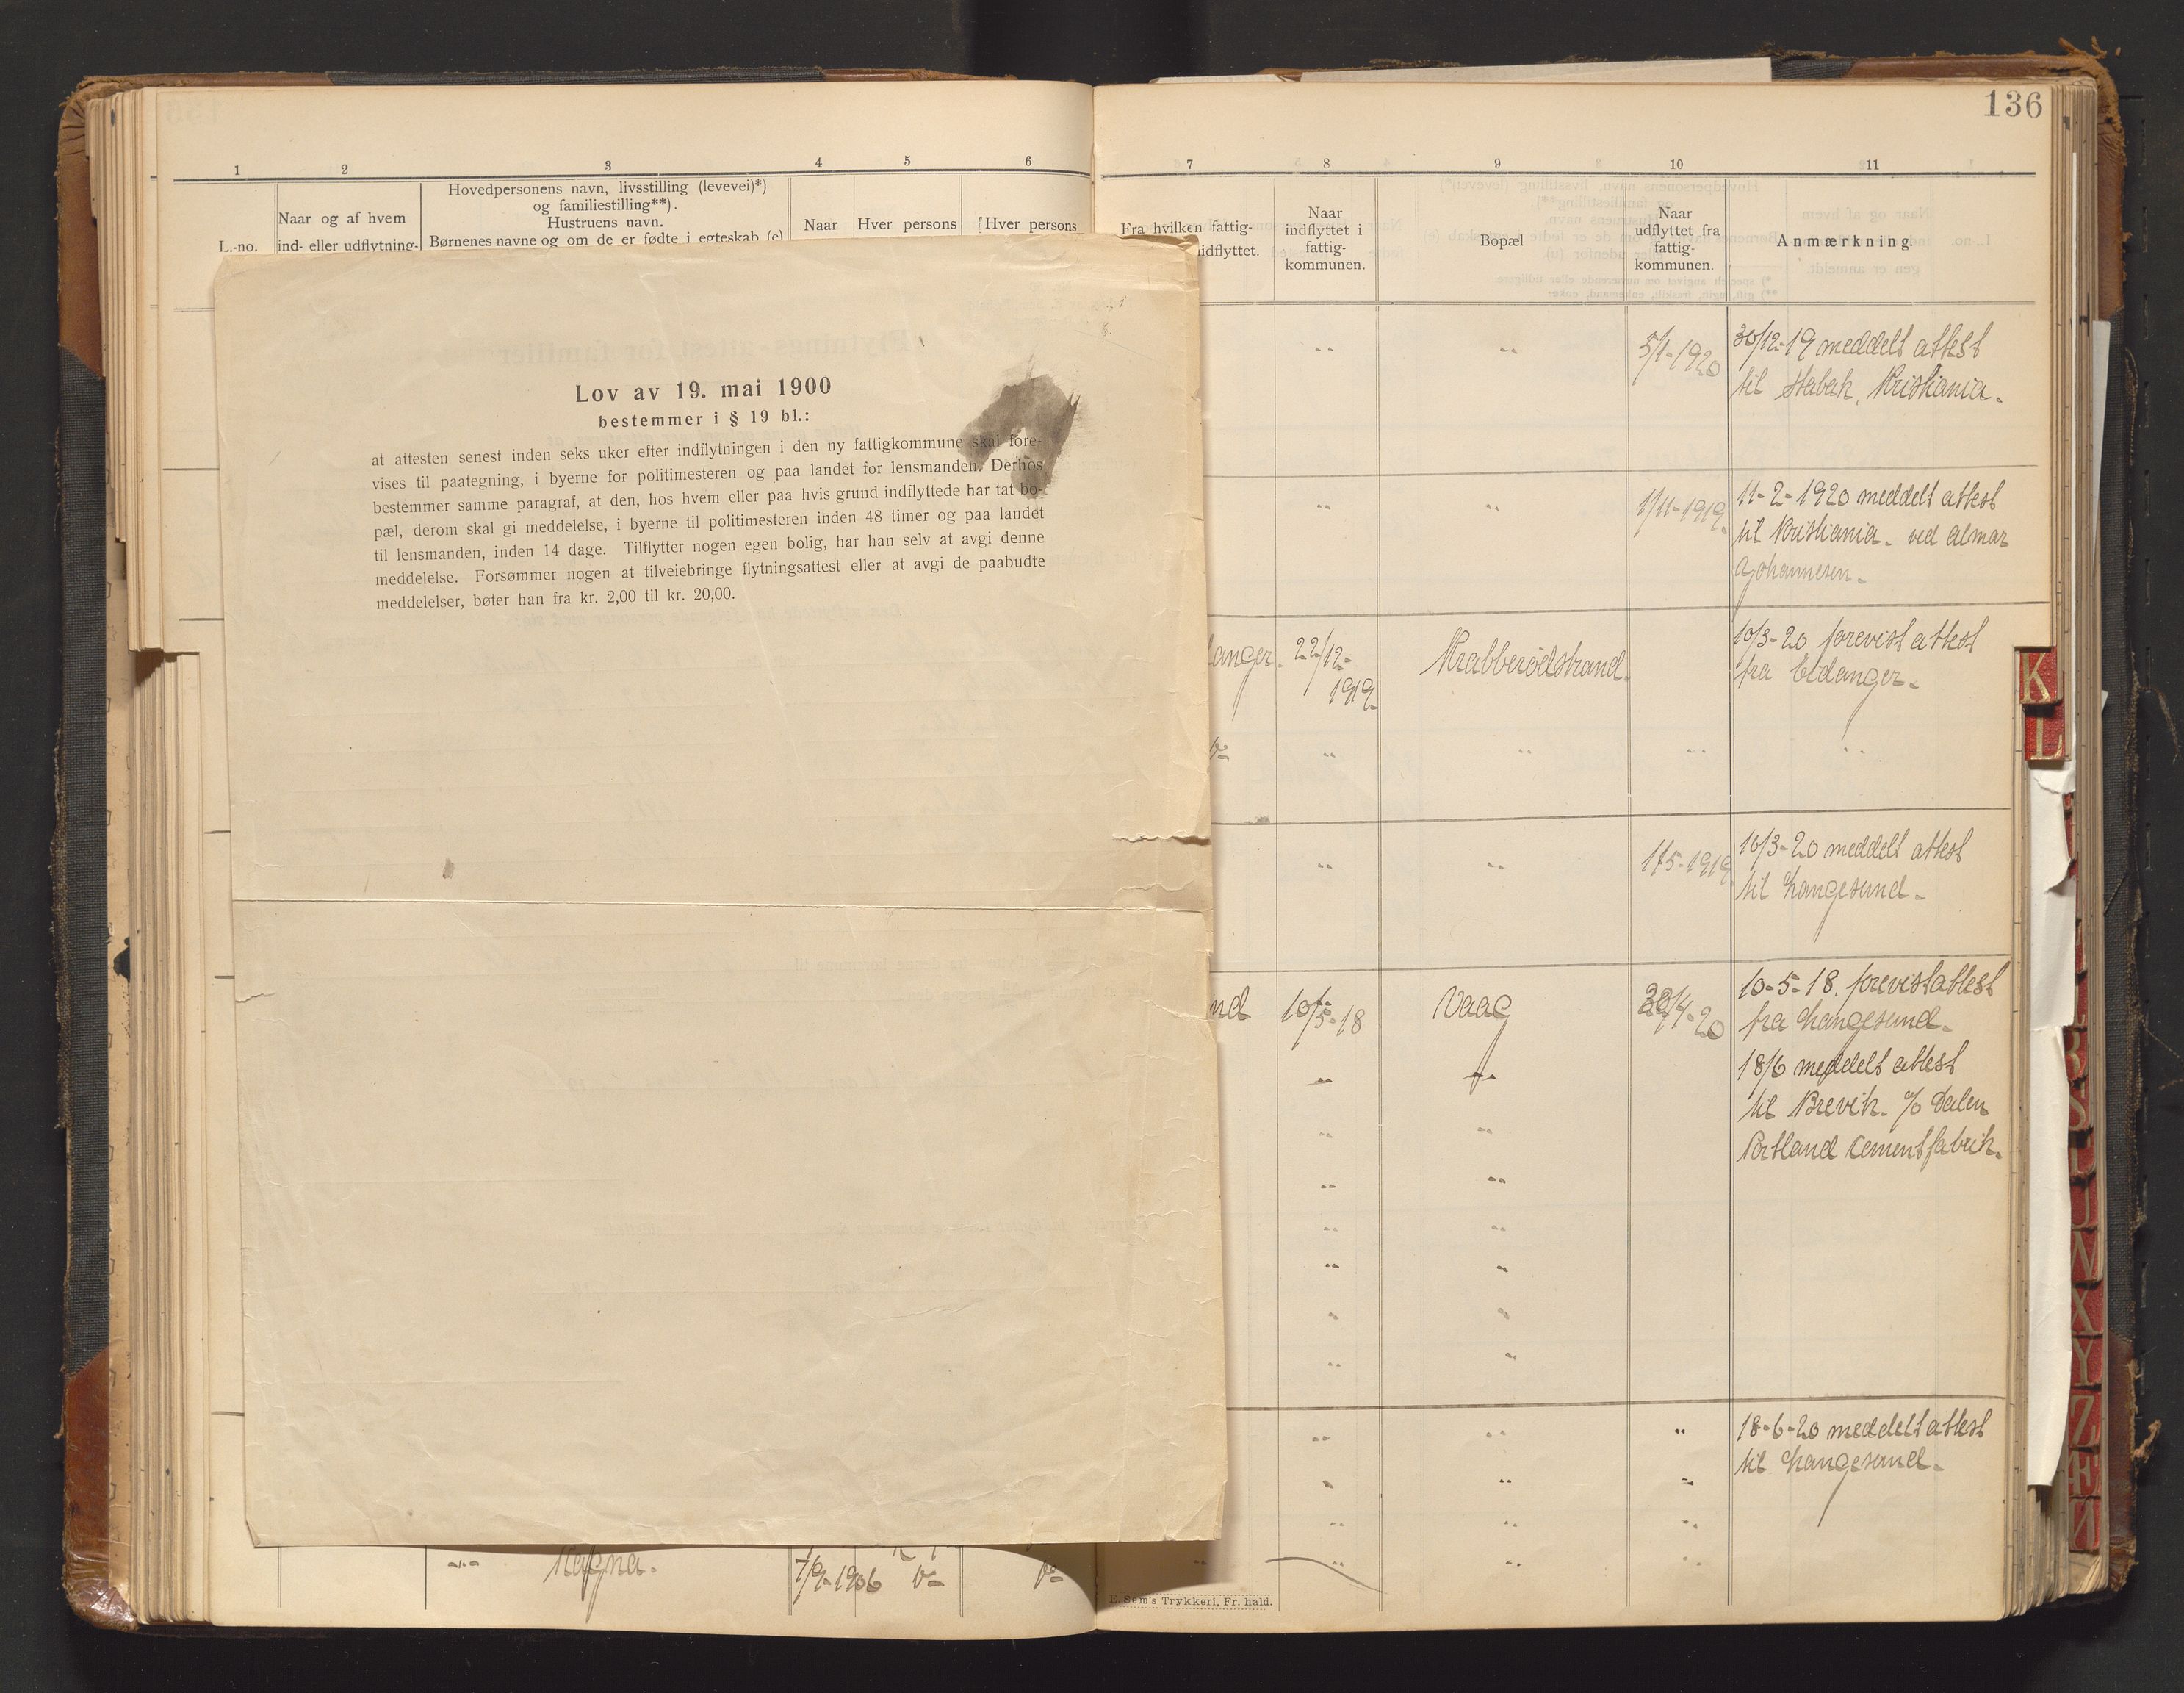 136
1 2 3 4 5 6 7 8 9 10 11
L.-no.
Naar og af hvem
ind- eller udflytning-
Hovedpersonens navn, livsstilling (levevei)*)
og familiestilling**).
Hustruens navn.
Børnenes navne og om de er fødte i egteskab (e)
Naar
Hver persons
Hver persons
Fra hvilken fattig-
indflyttet.
Naar
indflyttet i
fattig-
kommunen.
Bopæl
Naar
udflyttet fra
fattig-
kommunen.
Anmærkning.
Lov av 19. mai 1900
bestemmer i § 19 bl.:
at attesten senest inden seks uker efter indflytningen i den ny fattigkommune skal fore-
vises til paategning, i byerne for politimesteren og paa landet for lensmanden. Derhos
bestemmer samme paragraf, at den, hos hvem eller paa hvis grund indflyttede har tat bo-
pæl, derom skal gi meddelelse, i byerne til politimesteren inden 48 timer og paa landet
til lensmanden, inden 14 dage. Tilflytter nogen egen bolig, har han selv at avgi denne
meddelelse. Forsømmer nogen at tilveiebringe flytningsattest eller at avgi de paabudte
meddelelser, bøter han fra kr. 2,00 til kr. 20,00.
" " 5/1-1920 30/12-19 meddelt attest
til Stabæk, Kristiania.
" " 1/11-1919. 11-2-1920 meddelt attest
til Kristiania. ved Almar
Johannesen.
langer. 22/12-
1919. Krabberødstrand. 10/3-20 forevist attest
fra Eidanger.
" " " "
" " 1/5-1919 10/3-20 meddelt attest
til Langesund.
nd 10/5-18 Vaag 4-20 10-5-18. forevist attest
fra Langesund.
18/6 meddelt attest
til Brevik. c/o Dalen
Portland Cementfabrik.
" " " 18-6-20 meddelt attest
til Langesund.
Magna. 7/9-1906
E. Sem's Trykkeri, Fr. hald.
K
L
R
S
U
X
Y
Z